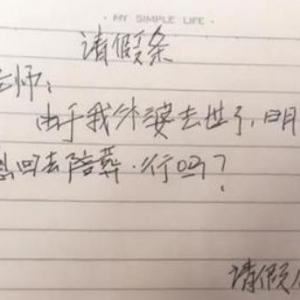 · MY SIMPLE LIFE ·
请假条
老师：
由于我外婆去世了,明
想回去陪葬.行吗?
请假